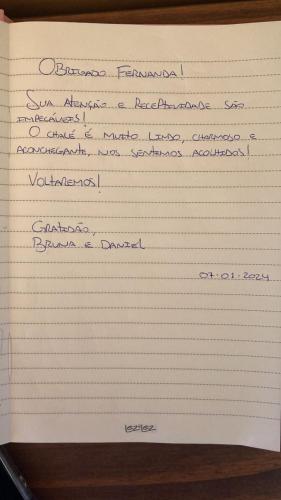 OBRIGADO FERNANDA!
SUA ATENÇÃO E RECEPTIVIDADE SÃO
IMPECÁVEIS!
O CHALÉ É MUITO LINDO, CHARMOSO E
ACONCHEGANTE, NOS SENTIMOS ACOLHIDOS!
VOLTAREMOS!
GRATIDÃO,
BRUNA E DANIEL
07.01.2024